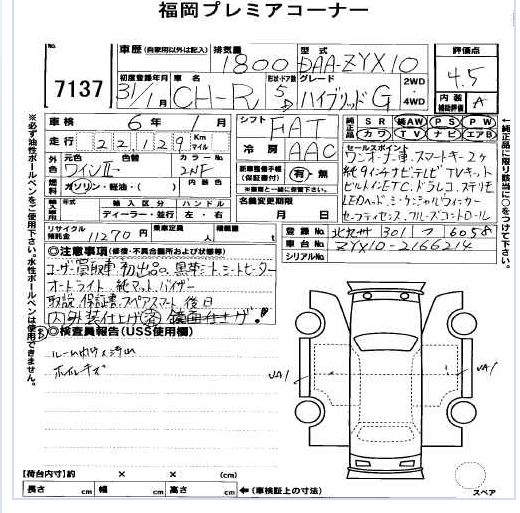 福岡プレミアコーナー
No. 7137
車歴 (自家用以外は記入) 排気量 1800 型式 DAA-ZYX10 評価点 4.5
初度登録年月 31/1月 車名 CH-R 形状・ドア数 5D グレード ハイブリッドG 2WD 4WD 内装 補助評価 A
車検 6年1月 シフト FAT 純正品 SR 純AW PS PW
走行 22,129 Km マイル 冷房 AAC カワ TV ナビ エアB
外色 元色 ワインII 色替 カラーNo. 2NF 内装色
燃料 ガソリン・軽油・( )
新車整備手帳(保証書付) 有・無
※盗難品に限り記入して下さい。
輸入車 年モデル 輸入区分 ディーラー・並行 ハンドル 左・右
名義変更期限 月 日
リサイクル預託金 11270円 月 積載量
セールスポイント
ワンオーナー車、スマートキー2ヶ
純9インチナビテレビTVキット
ビルトインETC、ドラレコ、ステリモ
LEDヘッド、シーケンシャルウィンカー
セーフティセンス、クルーズコントロール
登録No. 北九州 301 つ 6058
車台No. ZYX10-2166214
シリアルNo.
◎注意事項(修復・不具合箇所および状態等)
ユーザー買取車 初出品 黒革シート、シートヒーター
オートライト 純マット、バイザー
取説、保証書、スペアスマート 後日
内外装仕上げ済
◎検査員報告(USS使用欄)
ホイルキズ
UA1 UA1
【荷台内寸】約 × × (cm)
長さ cm 幅 cm 高さ cm ←(車検証上の寸法)
スペア
※必ず油性ボールペンをご使用下さい。水性ボールペンは使用できません。
←純正品に限り該当に○をつけて下さい。